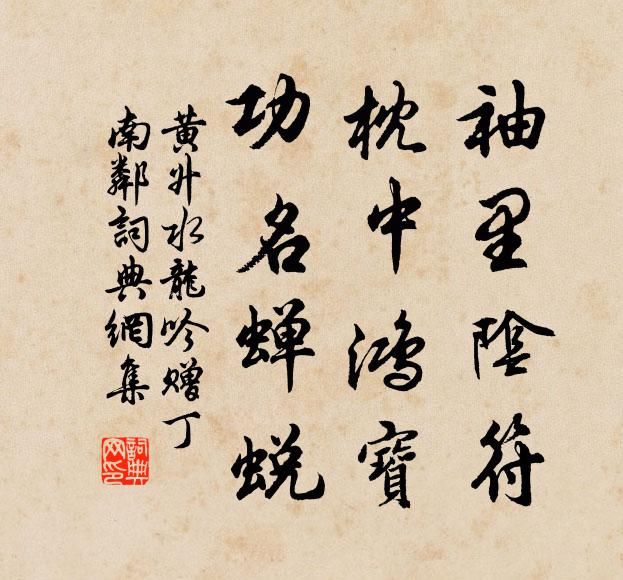 袖里陰符
枕中鴻寶
功名蝉蜕
黄升水龍吟赠丁
南鄰詞典網集
詞典
网印